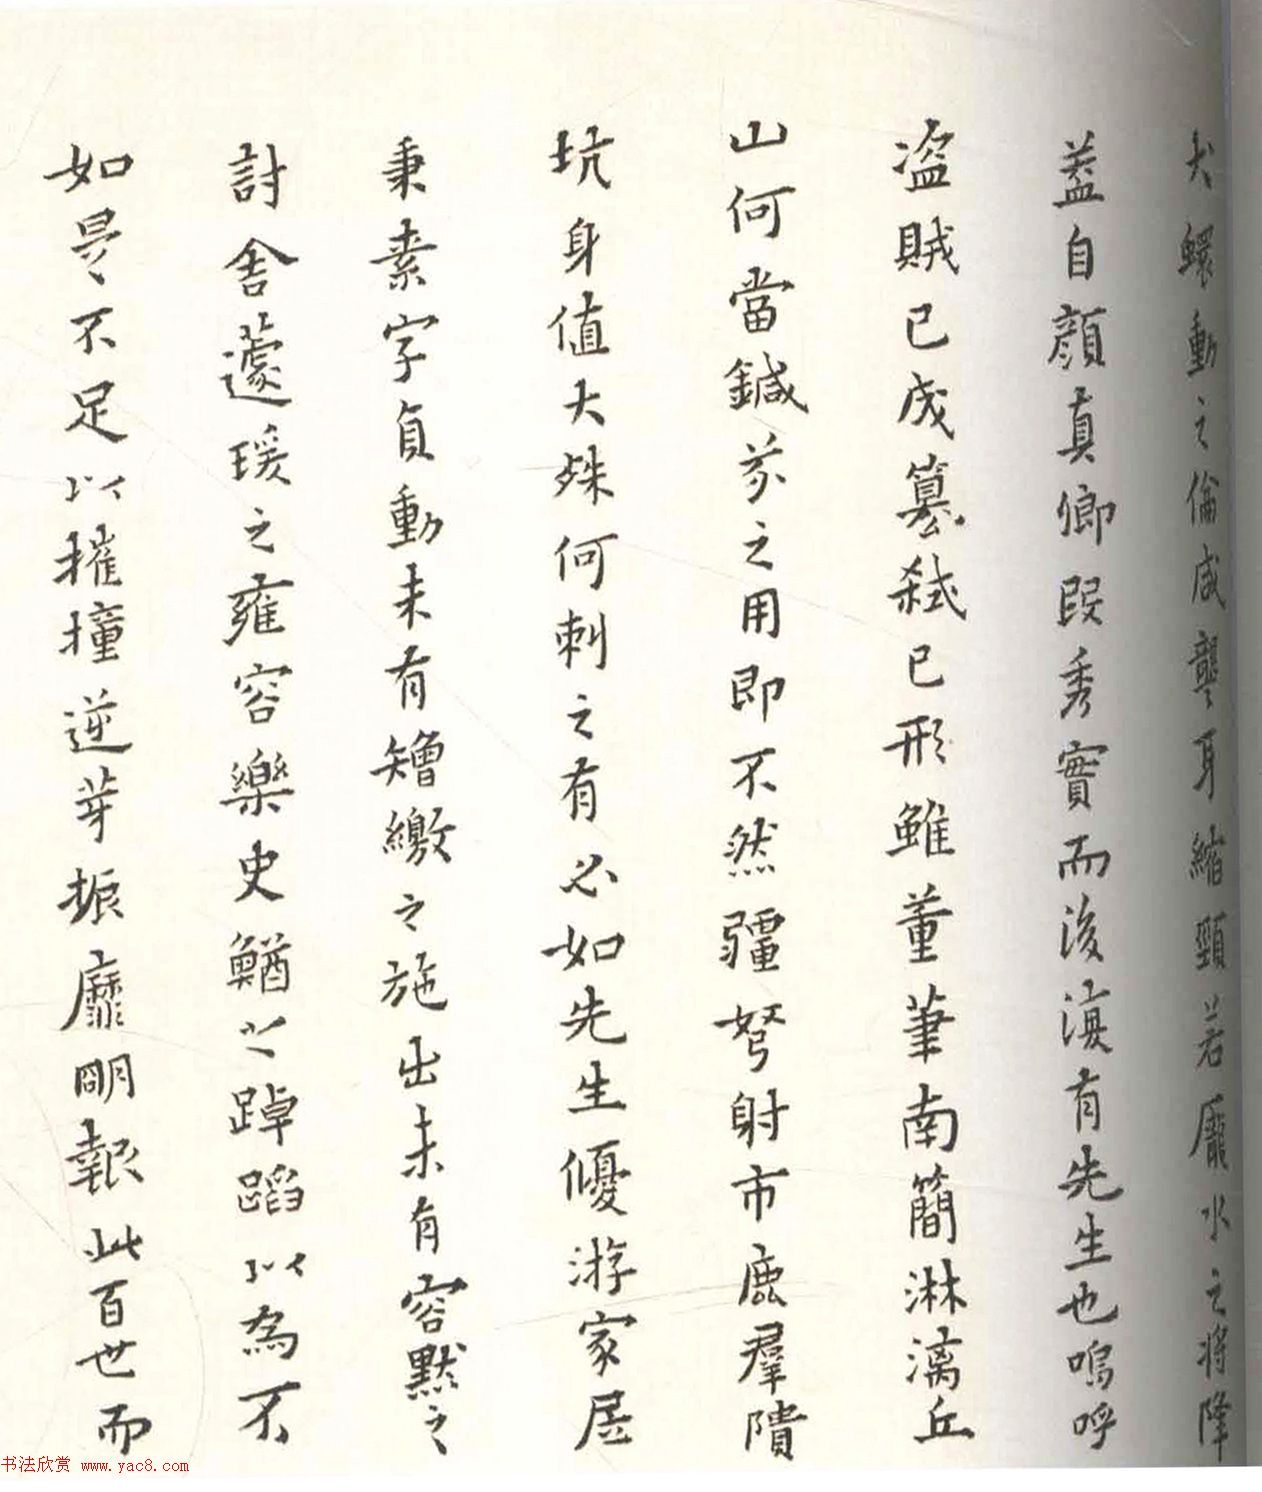 犬蠉動之倫咸聾耳縮頸若龐水之將降
蓋自顏真卿段秀實而後復有先生也嗚呼
盜賊已成篡弒已形雖董筆南簡淋漓丘
山何當鍼芥之用即不然彊弩射市鹿羣隤
坑身值大殊何刺之有必如先生優游家居
秉素字貞動未有矰繳之施出未有容默之
討舍蘧瑗之雍容樂史鰌之踔蹈以為不
如是不足以摧撞逆芽振靡明報此百世而
书法欣赏 www.yac8.com